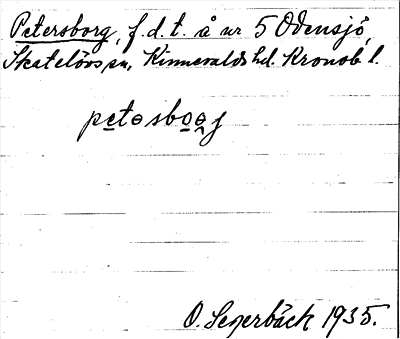 Petersborg, f.d.t. å nr 5 Odensjö,
Skatelövs sn, Kinnevalds hd. Kronob. l.
petəsbo̲ɐ̯j
O. Segerbäck 1935.